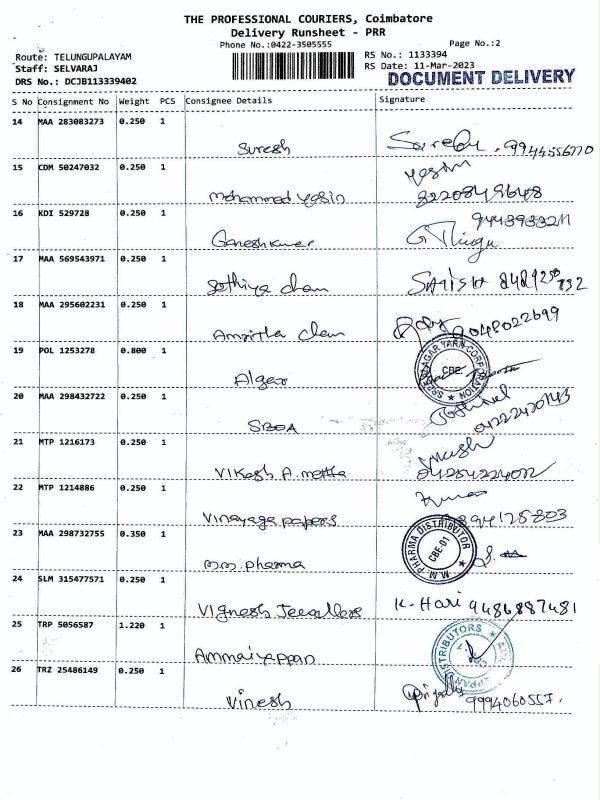 THE PROFESSIONAL COURIERS, Coimbatore
Delivery Runsheet - PRR
Phone No.:0422-3505555
Page No.:2
Route: TELUNGUPALAYAM
RS No.: 1133394
Staff: SELVARAJ
RS Date: 11-Mar-2023
DRS No.: DCJB113339402
DOCUMENT DELIVERY
S No Consignment No Weight PCS Consignee Details Signature
14 MAA 283083273 0.250 1
Suresh
15 CDM 50247032 0.250 1
mohammed yasin 8220849648
16 KDI 529728 0.250 1
Ganeshkumar
17 MAA 569543971 0.250 1
Sathiya cham
18 MAA 295602231 0.250 1
Amritha cham 9048022699
19 POL 1253278 0.800 1
SREE NAGAR YARN CORPORATION CBE.
20 MAA 298432722 0.250 1
21 MTP 1216173 0.250 1
Vikash A. metha
22 MTP 1214886 0.250 1
Vinayaga papers
23 MAA 298732755 0.350 1
M.M. PHARMA DISTRIBUTOR CBE-01
m.m. pharma
24 SLM 315477571 0.250 1
Vignesh Jewellers K. Hari 9486887481
25 TRP 5056587 1.220 1
DISTRIBUTORS
Ammaiyappan
26 TRZ 25486149 0.250 1
Vinesh 9994060557.